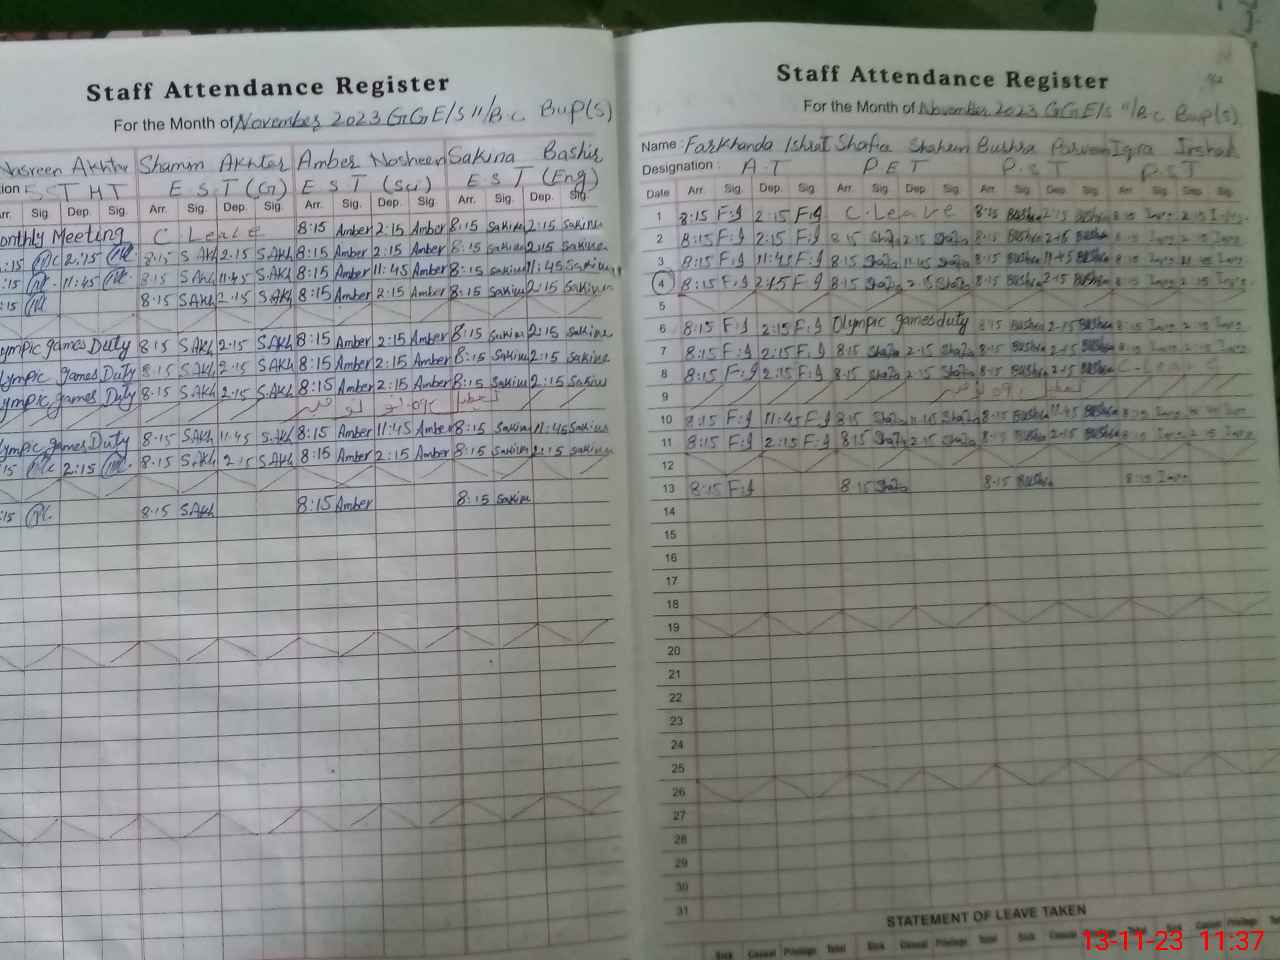 Staff Attendance Register
For the Month of November 2023 GGE/S 11/B.C Bwp(S)
Nasreen Akhtar Shamim Akhter Amber Nosheen Sakina Bashir
E S T H T E S T (G) E S T (Sci) E S T (Eng)
Arr. Sig. Dep. Sig. Arr. Sig. Dep. Sig. Arr. Sig. Dep. Sig. Arr. Sig. Dep. Sig.
onthly Meeting C Leave 8:15 Amber 2:15 Amber 8:15 Sakina 2:15 Sakina
:15 2:15 8:15 S.Akh 2:15 S.Akh 8:15 Amber 2:15 Amber 8:15 Sakina 2:15 Sakina
:15 11:45 8:15 S.Akh 11:45 S.Akh 8:15 Amber 11:45 Amber 8:15 Sakina 11:45 Sakina
:15 8:15 S.Akh 2:15 S.Akh 8:15 Amber 2:15 Amber 8:15 Sakina 2:15 Sakina
ympic games Duty 8:15 S.Akh 2:15 S.Akh 8:15 Amber 2:15 Amber 8:15 Sakina 2:15 Sakina
lympic games Duty 8:15 S.Akh 2:15 S.Akh 8:15 Amber 2:15 Amber 8:15 Sakina 2:15 Sakina
ympic games Duty 8:15 S.Akh 2:15 S.Akh 8:15 Amber 2:15 Amber 8:15 Sakina 2:15 Sakina
ympic games Duty 8:15 S.Akh 11:45 S.Akh 8:15 Amber 11:45 Amber 8:15 Sakina 11:45 Sakina
15 2:15 8:15 S.Akh 2:15 S.Akh 8:15 Amber 2:15 Amber 8:15 Sakina 2:15 Sakina
:15 8:15 S.Akh 8:15 Amber 8:15 Sakina
Staff Attendance Register
For the Month of November 2023 GGE/S 11/B.C Bwp(S)
Name: Farkhanda Ishrat Shafia Shaheen Bushra Parveen Iqra Irshad
Designation: A-T P E T P.S.T P.S.T
Date Arr. Sig. Dep. Sig. Arr. Sig. Dep. Sig. Arr. Sig. Dep. Sig. Arr. Sig. Dep. Sig.
1 8:15 F.I 2:15 F.I C. Leave 8:15 Bushra 2:15 Bushra 8:15 2:15
2 8:15 F.I 2:15 F.I 8:15 Shafia 2:15 Shafia 8:15 Bushra 2:15 Bushra 8:15 2:15
3 8:15 F.I 11:45 F.I 8:15 Shafia 11:45 Shafia 8:15 Bushra 11:45 Bushra 8:15 11:45
4 8:15 F.I 2:15 F.I 8:15 Shafia 2:15 Shafia 8:15 Bushra 2:15 Bushra 8:15 2:15
5
6 8:15 F.I 2:15 F.I Olympic games duty 8:15 Bushra 2:15 Bushra 8:15 2:15
7 8:15 F.I 2:15 F.I 8:15 Shafia 2:15 Shafia 8:15 Bushra 2:15 Bushra 8:15 2:15
8 8:15 F.I 2:15 F.I 8:15 Shafia 2:15 Shafia 8:15 Bushra 2:15 Bushra C-Leave
9
10 8:15 F.I 11:45 F.I 8:15 Shafia 11:45 Shafia 8:15 Bushra 11:45 Bushra 8:15 11:45
11 8:15 F.I 2:15 F.I 8:15 Shafia 2:15 Shafia 8:15 Bushra 2:15 Bushra 8:15 2:15
12
13 8:15 F.I 8:15 Shafia 8:15 Bushra 8:15
14
15
16
17
18
19
20
21
22
23
24
25
26
27
28
29
30
31
STATEMENT OF LEAVE TAKEN
Sick Casual Privilege Total Sick Casual Privilege Total Sick Casual Privilege Total Sick Casual Privilege
13-11-23 11:37